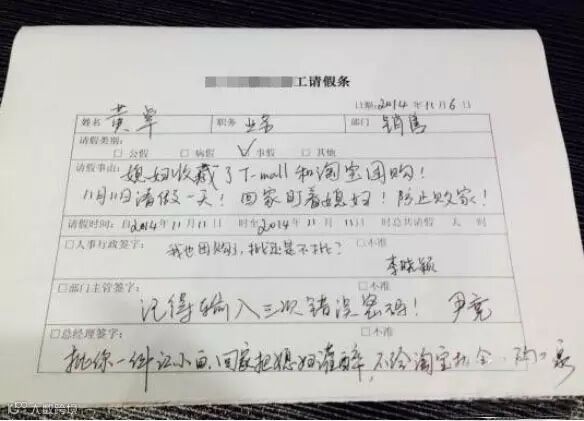 工请假条
日期：2014年11月6日
姓名 黄卓 职务 业务 部门 销售
请假类别：
□公假 □病假 ☑事假 □其他
请假事由：媳妇收藏了T-mall和淘宝团购！
11月11日请假一天！回家盯着媳妇！防止败家！
请假时间：自2014年11月11日 时至2014年11月11日 时总共请假 天 时
□人事行政签字：我也团购了，批还是不批？ □不准
李晓颖
□部门主管签字： □不准
记得输入三次错误密码！ 尹亮
□总经理签字： □不准
批你一件江小白，回家把媳妇灌醉，不给淘宝机会
大数跨境